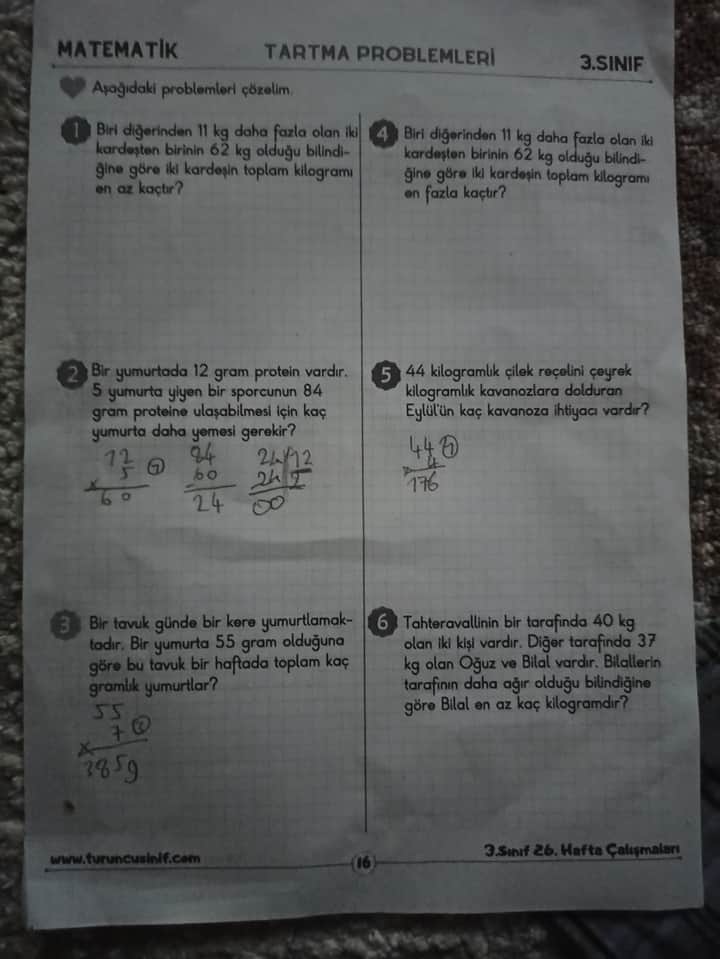 MATEMATİK
TARTMA PROBLEMLERİ
3.SINIF
Aşağıdaki problemleri çözelim.
1 Biri diğerinden 11 kg daha fazla olan iki
kardeşten birinin 62 kg olduğu bilindi-
ğine göre iki kardeşin toplam kilogramı
en az kaçtır?
2 Bir yumurtada 12 gram protein vardır.
5 yumurta yiyen bir sporcunun 84
gram proteine ulaşabilmesi için kaç
yumurta daha yemesi gerekir?
12 84 24 12
x 5 - 60 24 2
60 24 00
3 Bir tavuk günde bir kere yumurtlamak-
tadır. Bir yumurta 55 gram olduğuna
göre bu tavuk bir haftada toplam kaç
gramlık yumurtlar?
55
x 7
385g
4 Biri diğerinden 11 kg daha fazla olan iki
kardeşten birinin 62 kg olduğu bilindi-
ğine göre iki kardeşin toplam kilogramı
en fazla kaçtır?
5 44 kilogramlık çilek reçelini çeyrek
kilogramlık kavanozlara dolduran
Eylül'ün kaç kavanoza ihtiyacı vardır?
44
x 4
176
6 Tahteravallinin bir tarafında 40 kg
olan iki kişi vardır. Diğer tarafında 37
kg olan Oğuz ve Bilal vardır. Bilallerin
tarafının daha ağır olduğu bilindiğine
göre Bilal en az kaç kilogramdır?
www.turuncusinif.com
16
3.Sınıf 26. Hafta Çalışmaları